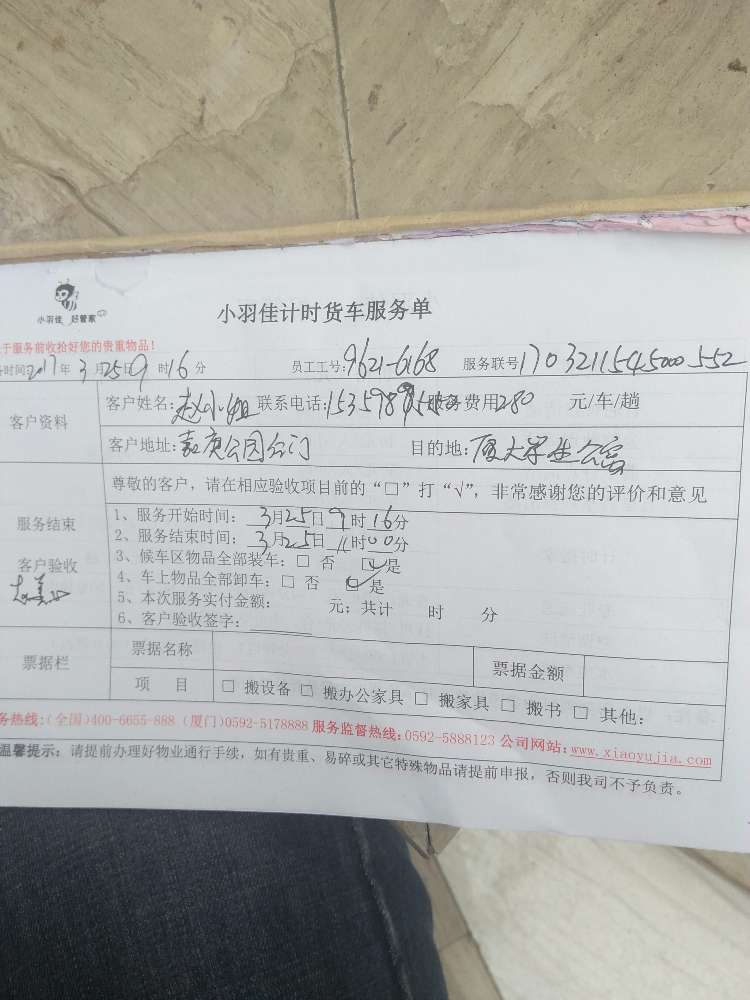 小羽佳 好管家
小羽佳计时货车服务单
于服务前收拾好您的贵重物品!
务时间2017年3月25日9时16分 员工工号:9621-6168 服务联号170321154545000552
客户资料
客户姓名:赵小姐 联系电话: 服务费用280 元/车/趟
客户地址:嘉庚公园 目的地:厦大学生公寓
尊敬的客户,请在相应验收项目前的“□”打“√”,非常感谢您的评价和意见
服务结束
客户验收
1、服务开始时间:3月25日9时16分
2、服务结束时间:3月25日11时00分
3、候车区物品全部装车:□ 否 ☑是
4、车上物品全部卸车:□ 否 ☑是
5、本次服务实付金额: 元;共计 时 分
6、客户验收签字:
票据栏
票据名称 票据金额
项 目 □ 搬设备 □ 搬办公家具 □ 搬家具 □ 搬书 □ 其他:
务热线:(全国)400-6655-888 (厦门)0592-5178888 服务监督热线:0592-5888123 公司网站:www.xiaoyujia.com
温馨提示:请提前办理好物业通行手续,如有贵重、易碎或其它特殊物品请提前申报,否则我司不予负责。